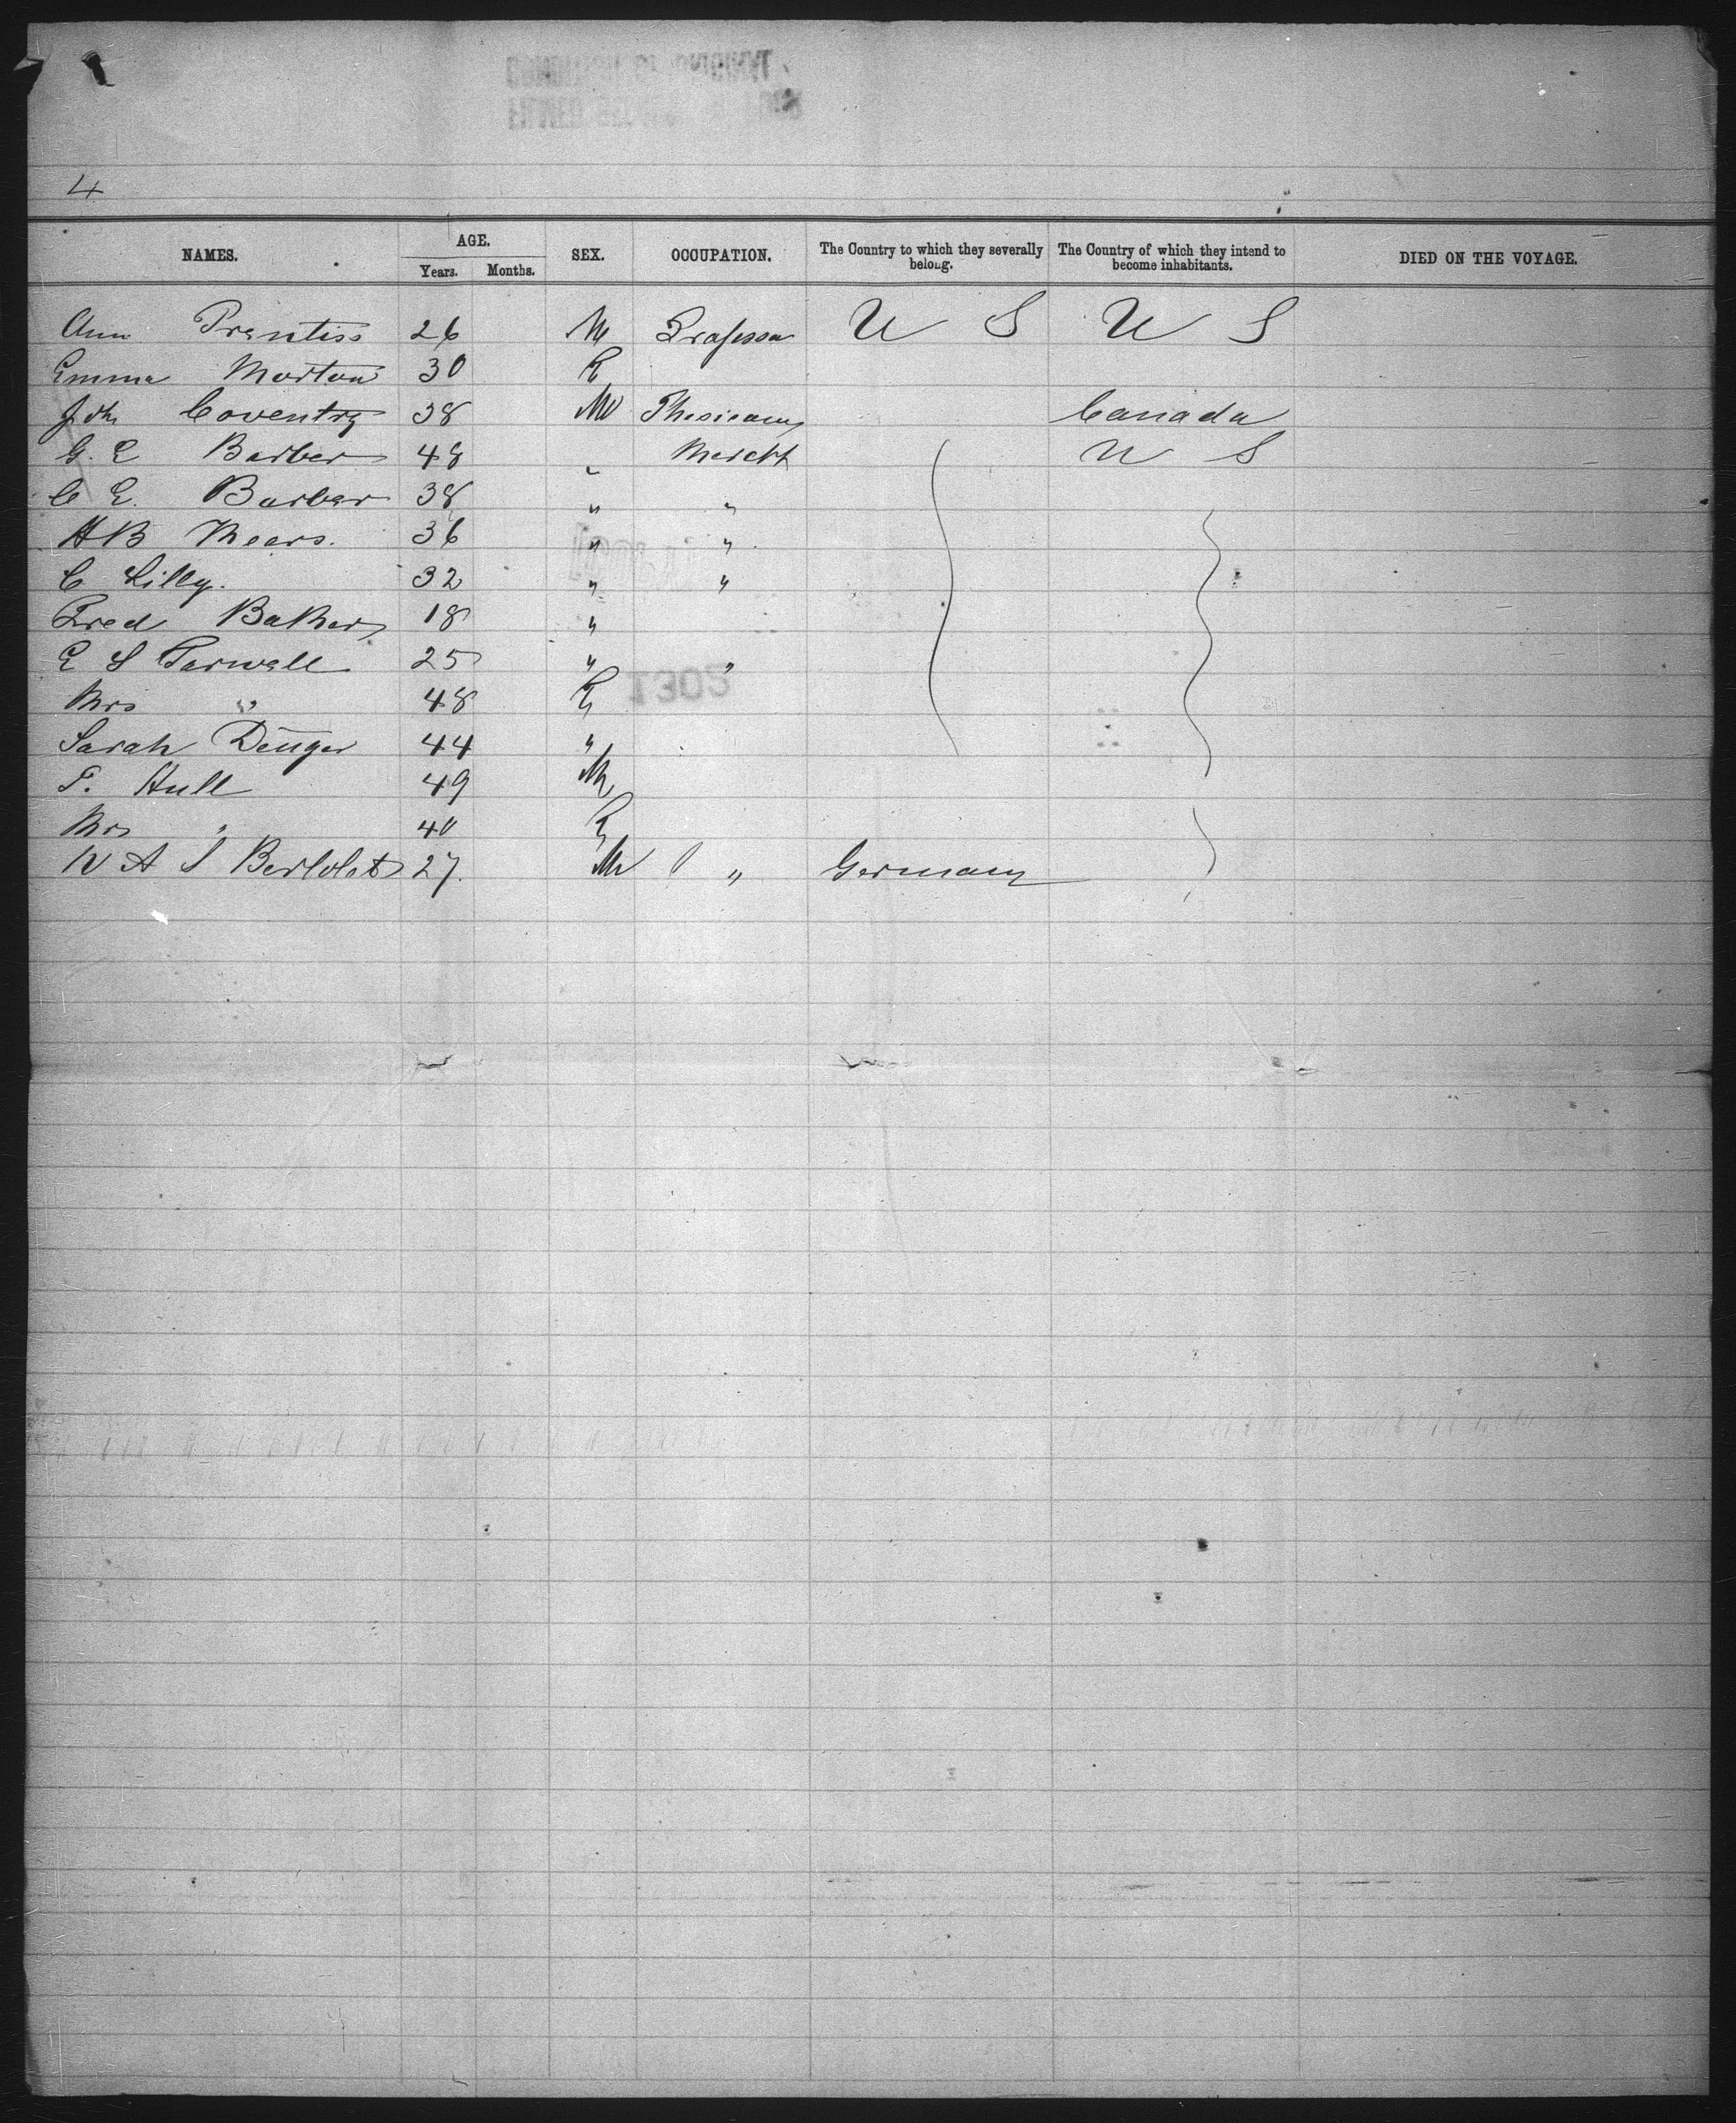 4
NAMES. AGE. Years. Months. SEX. OCCUPATION. The Country to which they severally belong. The Country of which they intend to become inhabitants. DIED ON THE VOYAGE.
Ann Prentiss 26 M Professor U S U S
Emma Morton 30 F
Jdh Coventry 38 M Phesicean Canada
G. E Barber 48 " Mercht U S
C E. Barber 38 " "
HB Mears. 36 " "
C Lilly. 32 " "
Fred Baker 18 "
E S Farwell 25 " "
Mrs " 48 F
Sarah Denger 44 "
T. Hull 49 M
Mrs " 40 F
W A S Bertolet 27. M " Germany
1302